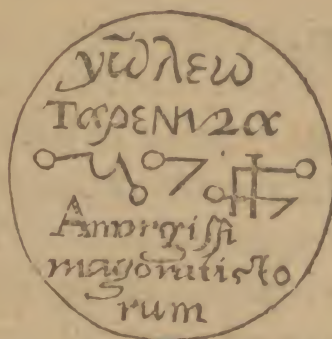 γῶλεω
ΤαρεΝι2α
Amorgissi
magoratisto
rum